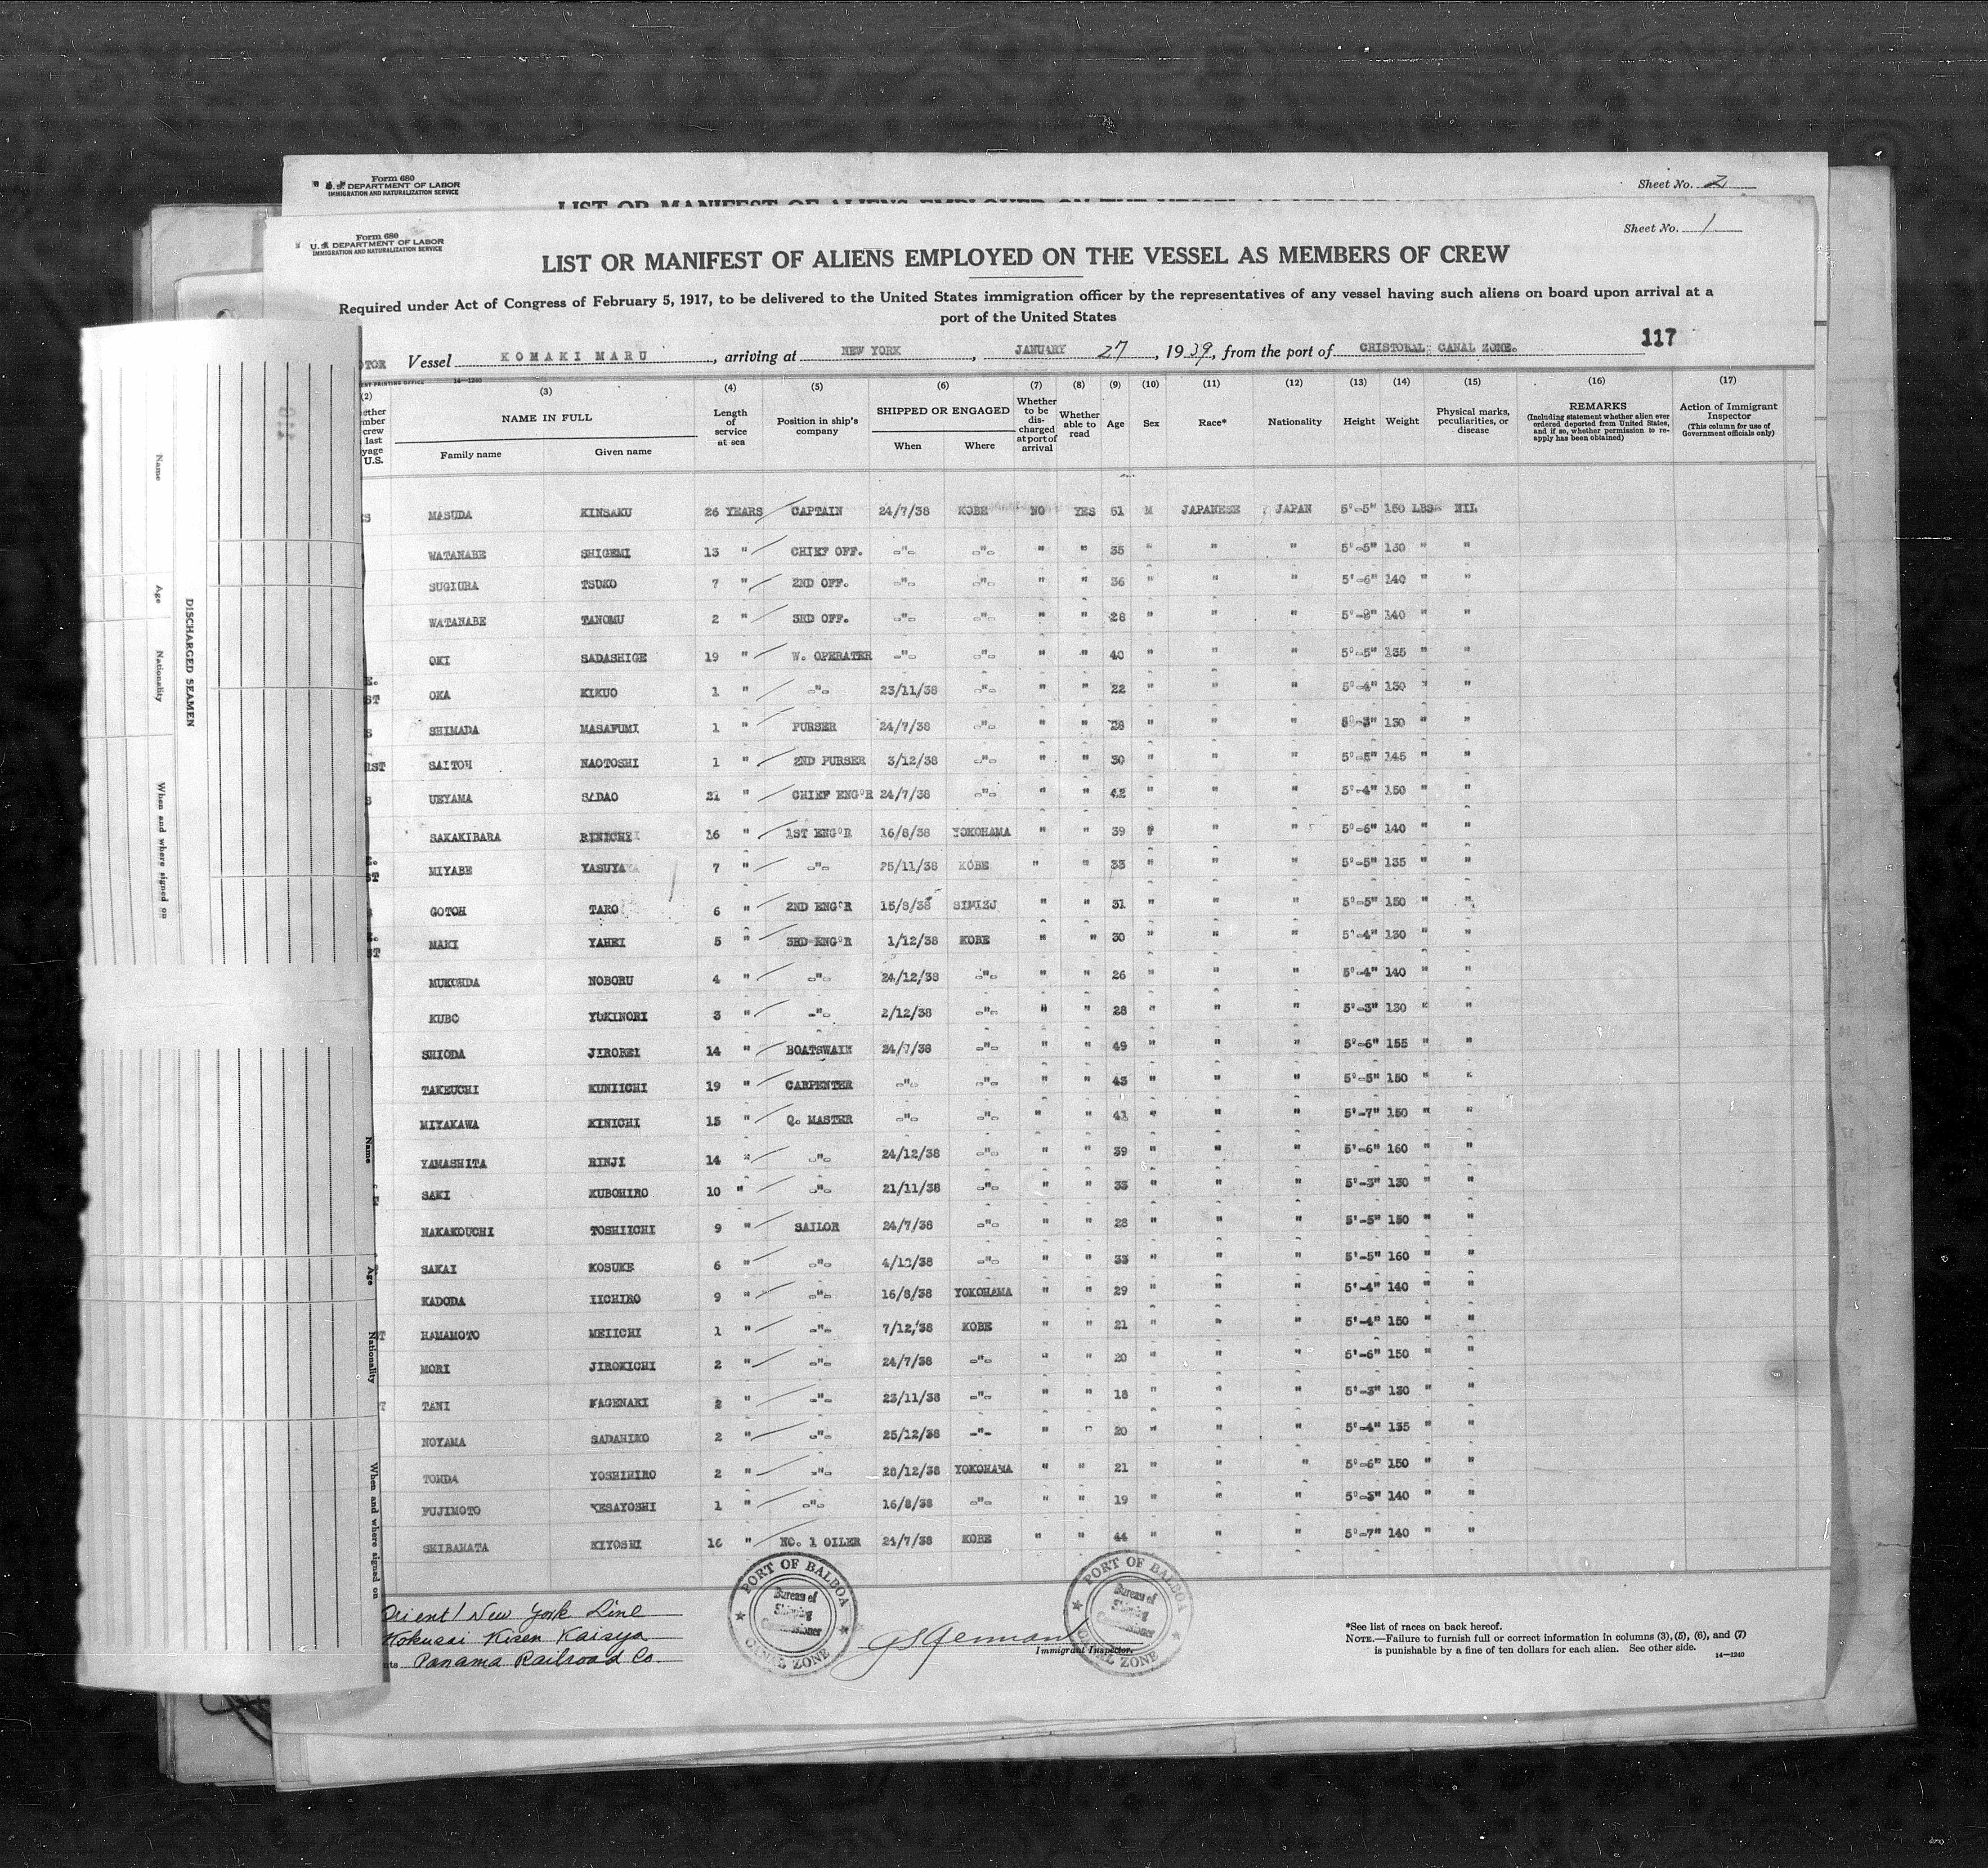 Form 680
U.S. DEPARTMENT OF LABOR
IMMIGRATION AND NATURALIZATION SERVICE
Sheet No. 2
LIST OR MANIFEST OF ALIENS EMPLOYED ON THE VESSEL AS MEMBERS
Form 680
U.S. DEPARTMENT OF LABOR
IMMIGRATION AND NATURALIZATION SERVICE
Sheet No. 1
LIST OR MANIFEST OF ALIENS EMPLOYED ON THE VESSEL AS MEMBERS OF CREW
Required under Act of Congress of February 5, 1917, to be delivered to the United States immigration officer by the representatives of any vessel having such aliens on board upon arrival at a
port of the United States
117
TOR Vessel KOMAKI MARU, arriving at NEW YORK, JANUARY 27, 1939, from the port of CRISTOBAL CANAL ZONE.
14—1240
(2) (3) (4) (5) (6) (7) (8) (9) (10) (11) (12) (13) (14) (15) (16) (17)
NAME IN FULL
Family name Given name
Length of service at sea
Position in ship's company
SHIPPED OR ENGAGED
When Where
Whether to be discharged at port of arrival
Whether able to read
Age
Sex
Race*
Nationality
Height
Weight
Physical marks, peculiarities, or disease
REMARKS
(Including statement whether alien ever ordered deported from United States, and if so, whether permission to reapply has been obtained)
Action of Immigrant Inspector
(This column for use of Government officials only)
MASUDA KINSAKU 26 YEARS CAPTAIN 24/7/38 KOBE NO YES 51 M JAPANESE JAPAN 5'-5" 150 LBS NIL
WATANABE SHIGEMI 13 " CHIEF OFF. -"- -"- " " 35 " " " 5'-5" 130 " "
SUGIURA TSUKO 7 " 2ND OFF. -"- -"- " " 36 " " " 5'-6" 140 " "
WATANABE TANOMU 2 " 3RD OFF. -"- -"- " " 28 " " " 140 " "
OKI SADASHIGE 19 " W. OPERATER -"- -"- " " 40 " " " 5'-5" 135 " "
OKA KIKUO 1 " -"- 23/11/38 -"- " " 22 " " " 5'-4" 130 " "
SHIMADA MASAFUMI 1 " PURSER 24/7/38 -"- " " 28 " " " 5'-3" 130 " "
SAITOH NAOTOSHI 1 " 2ND PURSER 3/12/38 -"- " " 30 " " " 5'-5" 145 " "
UEYAMA SADAO 21 " CHIEF ENG'R 24/7/38 -"- " " 42 " " " 5'-4" 150 " "
SAKAKIBARA RINICHI 16 " 1ST ENG'R 16/8/38 YOKOHAMA " " 39 " " " 5'-6" 140 " "
MIYABE YASUYA 7 " -"- 25/11/38 KOBE " " 33 " " " 5'-5" 135 " "
GOTOH TARO 6 " 2ND ENG'R 15/8/38 SIMIZU " " 31 " " " 5'-5" 150 " "
MAKI YAHEI 5 " 3RD ENG'R 1/12/38 KOBE " " 30 " " " 5'-4" 130 " "
MUKOHDA NOBORU 4 " -"- 24/12/38 -"- " " 26 " " " 5'-4" 140 " "
KUBO YUKINORI 3 " -"- 2/12/38 -"- " " 28 " " " 5'-3" 130 " "
SHIODA JIROBEI 14 " BOATSWAIN 24/7/38 -"- " " 49 " " " 5'-6" 155 " "
TAKEUCHI KUNIICHI 19 " CARPENTER -"- -"- " " 43 " " " 5'-5" 150 " "
MIYAKAWA KINICHI 15 " Q. MASTER -"- -"- " " 41 " " " 5'-7" 150 " "
YAMASHITA RINJI 14 " -"- 24/12/38 -"- " " 39 " " " 5'-6" 160 " "
SAKI KUBOHIRO 10 " -"- 21/11/38 -"- " " 33 " " " 5'-3" 130 " "
NAKAKOUCHI TOSHIICHI 9 " SAILOR 24/7/38 -"- " " 28 " " " 5'-5" 150 " "
SAKAI KOSUKE 6 " -"- 4/12/38 -"- " " 33 " " " 5'-5" 160 " "
KADODA IICHIRO 9 " -"- 16/8/38 YOKOHAMA " " 29 " " " 5'-4" 140 " "
HAMAMOTO MEIICHI 1 " -"- 7/12/38 KOBE " " 21 " " " 5'-4" 150 " "
MORI JIROKICHI 2 " -"- 24/7/38 -"- " " 20 " " " 5'-6" 150 " "
TANI KAGENAKI 2 " -"- 23/11/38 -"- " " 18 " " " 5'-3" 130 " "
NOYAMA SADAHIKO 2 " -"- 25/12/38 -"- " " 20 " " " 5'-4" 135 " "
TOHDA YOSHIHIRO 2 " -"- 28/12/38 YOKOHAMA " " 21 " " " 5'-6" 150 " "
FUJIMOTO KESAYOSHI 1 " -"- 16/8/38 -"- " " 19 " " " 5'-3" 140 " "
SHIBAHATA KIYOSHI 16 " NO. 1 OILER 24/7/38 KOBE " " 44 " " " 5'-7" 140 " "
Orient/New York Line
Kokusai Kisen Kaisya
nts Panama Railroad Co.
PORT OF BALBOA
Bureau of Shipping Commissioner
CANAL ZONE
Immigrant Inspector.
PORT OF BALBOA
Bureau of Shipping Commissioner
CANAL ZONE
*See list of races on back hereof.
NOTE.—Failure to furnish full or correct information in columns (3), (5), (6), and (7)
is punishable by a fine of ten dollars for each alien. See other side.
14—1240
DISCHARGED SEAMEN
Name Age Nationality When and where signed on
Name Age Nationality When and where signed on